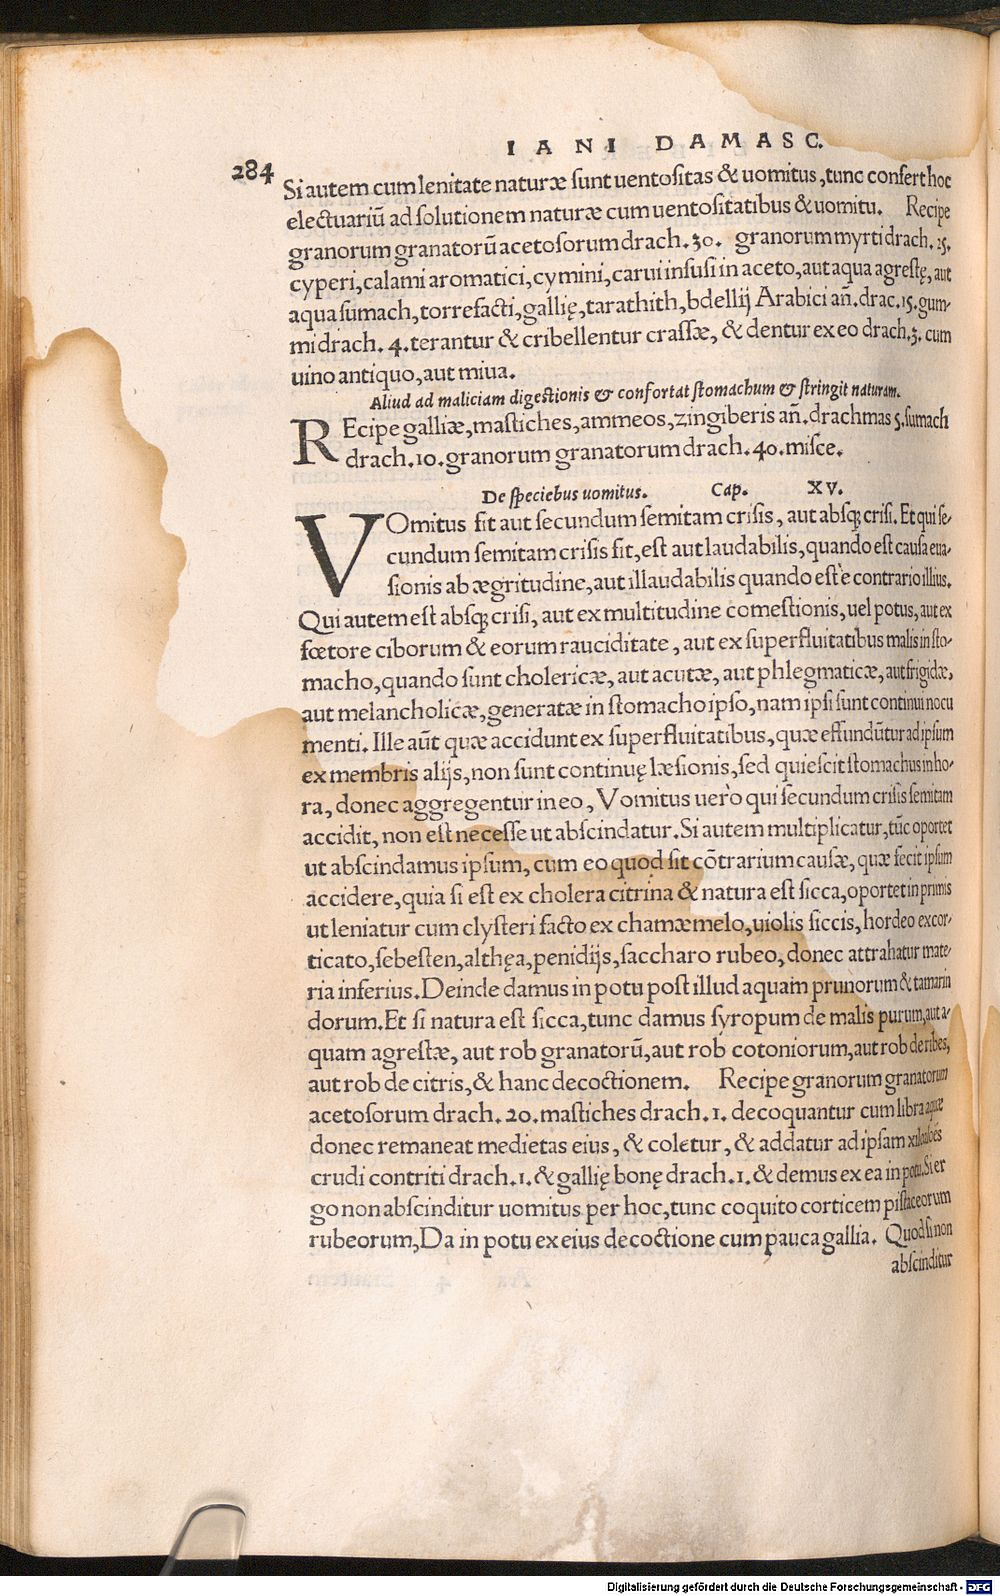 IANI DAMASC.
284
Si autem cum lenitate naturæ sunt uentositas & uomitus, tunc confert hoc
electuariū ad solutionem naturæ cum uentositatibus & uomitu. Recipe
granorum granatorū acetosorum drach. 30. granorum myrti drach. 25.
cyperi, calami aromatici, cymini, carui infusi in aceto, aut aqua agrestę, aut
aqua sumach, torrefacti, gallię, tarathith, bdellij Arabici añ. drac. 15. gum-
mi drach. 4. terantur & cribellentur crassæ, & dentur ex eo drach. 3. cum
uino antiquo, aut miua.
Aliud ad maliciam digestionis & confortat stomachum & stringit naturam.
REcipe galliæ, mastiches, ammeos, zingiberis añ. drachmas 5. sumach
drach. 10. granorum granatorum drach. 40. misce.
De speciebus uomitus. Cap. XV.
VOmitus fit aut secundum semitam crisis, aut absq; crisi. Et qui se-
cundum semitam crisis fit, est aut laudabilis, quando est causa eua-
sionis ab ægritudine, aut illaudabilis quando est è contrario illius.
Qui autem est absq; crisi, aut ex multitudine comestionis, uel potus, aut ex
fœtore ciborum & eorum rauciditate, aut ex superfluitatibus malis in sto-
macho, quando sunt cholericæ, aut acutæ, aut phlegmaticæ, aut frigidæ,
aut melancholicæ, generatæ in stomacho ipso, nam ipsi sunt continui nocu
menti. Ille aūt quæ accidunt ex superfluitatibus, quæ effundūtur ad ipsum
ex membris alijs, non sunt continuę læsionis, sed quiescit stomachus in ho-
ra, donec aggregentur in eo, Vomitus uerò qui secundum crisis semitam
accidit, non est necesse ut abscindatur. Si autem multiplicatur, tūc oportet
ut abscindamus ipsum, cum eo quod sit cōtrarium causæ, quæ fecit ipsum
accidere, quia si est ex cholera citrina & natura est sicca, oportet in primis
ut leniatur cum clysteri facto ex chamæmelo, uiolis siccis, hordeo excor-
ticato, sebesten, althęa, penidijs, saccharo rubeo, donec attrahatur mate-
ria inferius. Deinde damus in potu post illud aquam prunorum & tamarin
dorum. Et si natura est sicca, tunc damus syropum de malis purum, aut a-
quam agrestæ, aut rob granatorū, aut rob cotoniorum, aut rob de ribes,
aut rob de citris, & hanc decoctionem. Recipe granorum granatorum
acetosorum drach. 20. mastiches drach. 1. decoquantur cum libra aquæ
donec remaneat medietas eius, & coletur, & addatur ad ipsam xiloaloës
crudi contriti drach. 1. & gallię bonę drach. 1. & demus ex ea in potu. Si er
go non abscinditur uomitus per hoc, tunc coquito corticem pistaceorum
rubeorum, Da in potu ex eius decoctione cum pauca gallia. Quod si non
abscinditur
Digitalisierung gefördert durch die Deutsche Forschungsgemeinschaft - DFG